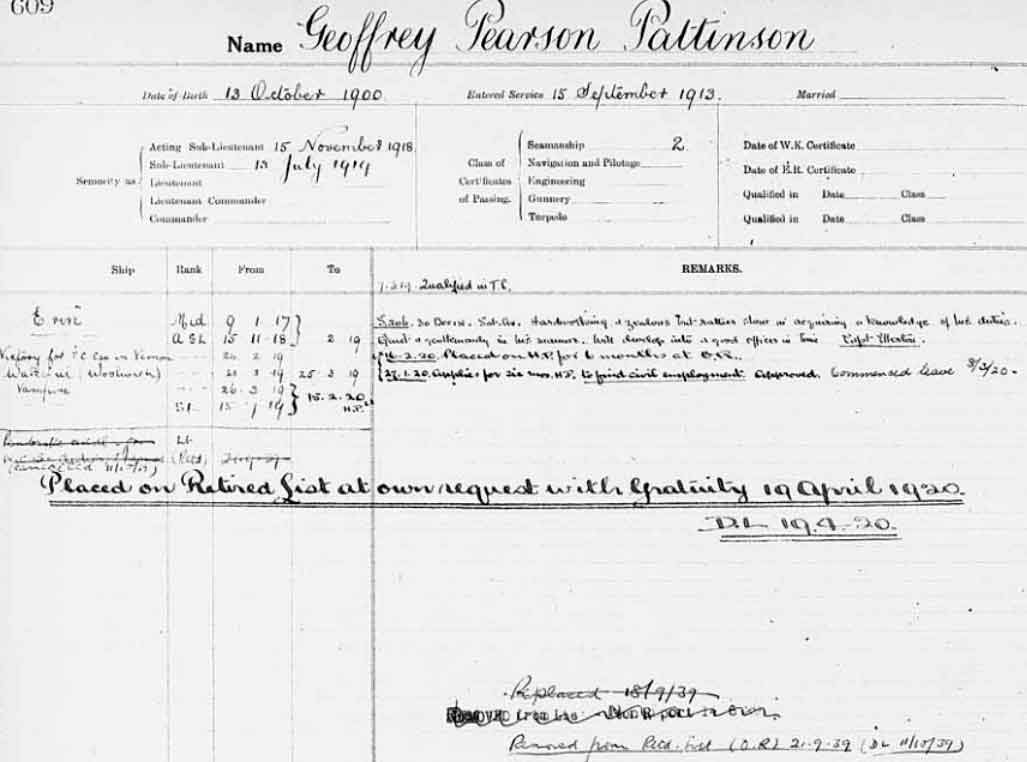 609
Name Geoffrey Pearson Pattinson
Date of Birth 13 October 1900 Entered Service 15 September 1913. Married
Seniority as Acting Sub-Lieutenant 15 November 1918
Sub-Lieutenant 15 July 1919
Lieutenant
Lieutenant Commander
Commander
Class of Certificates of Passing. Seamanship 2
Navigation and Pilotage
Engineering
Gunnery
Torpedo
Date of W.K. Certificate
Date of E.R. Certificate
Qualified in Date Class
Qualified in Date Class
Ship Rank From To REMARKS.
Qualified in T.S.
Erin Mid 9 1 17
A SL 15 11 18 2 19
Hardworking & zealous but rather slow in acquiring a knowledge of his duties.
Quiet & gentlemanly in his manner. Will develop into a good officer in time
Victory for 19
Placed on H.P. for 6 months at O.R.
(Woolwich) 3 19 25 3 19
27.1.20. Applies for six mos. H.P. to find civil employment. Approved. Commenced leave 3/3/20
Vampire 26 3 19 15.2.20 H.P.
SL 15 7 19
Lt
Placed on Retired List at own request with Gratuity 19 April 1920.
D.L 19.4.20.
Replaced 18/9/39
Removed from Retd. List (O.R.) 21.9.39 (DL 11/10/39)